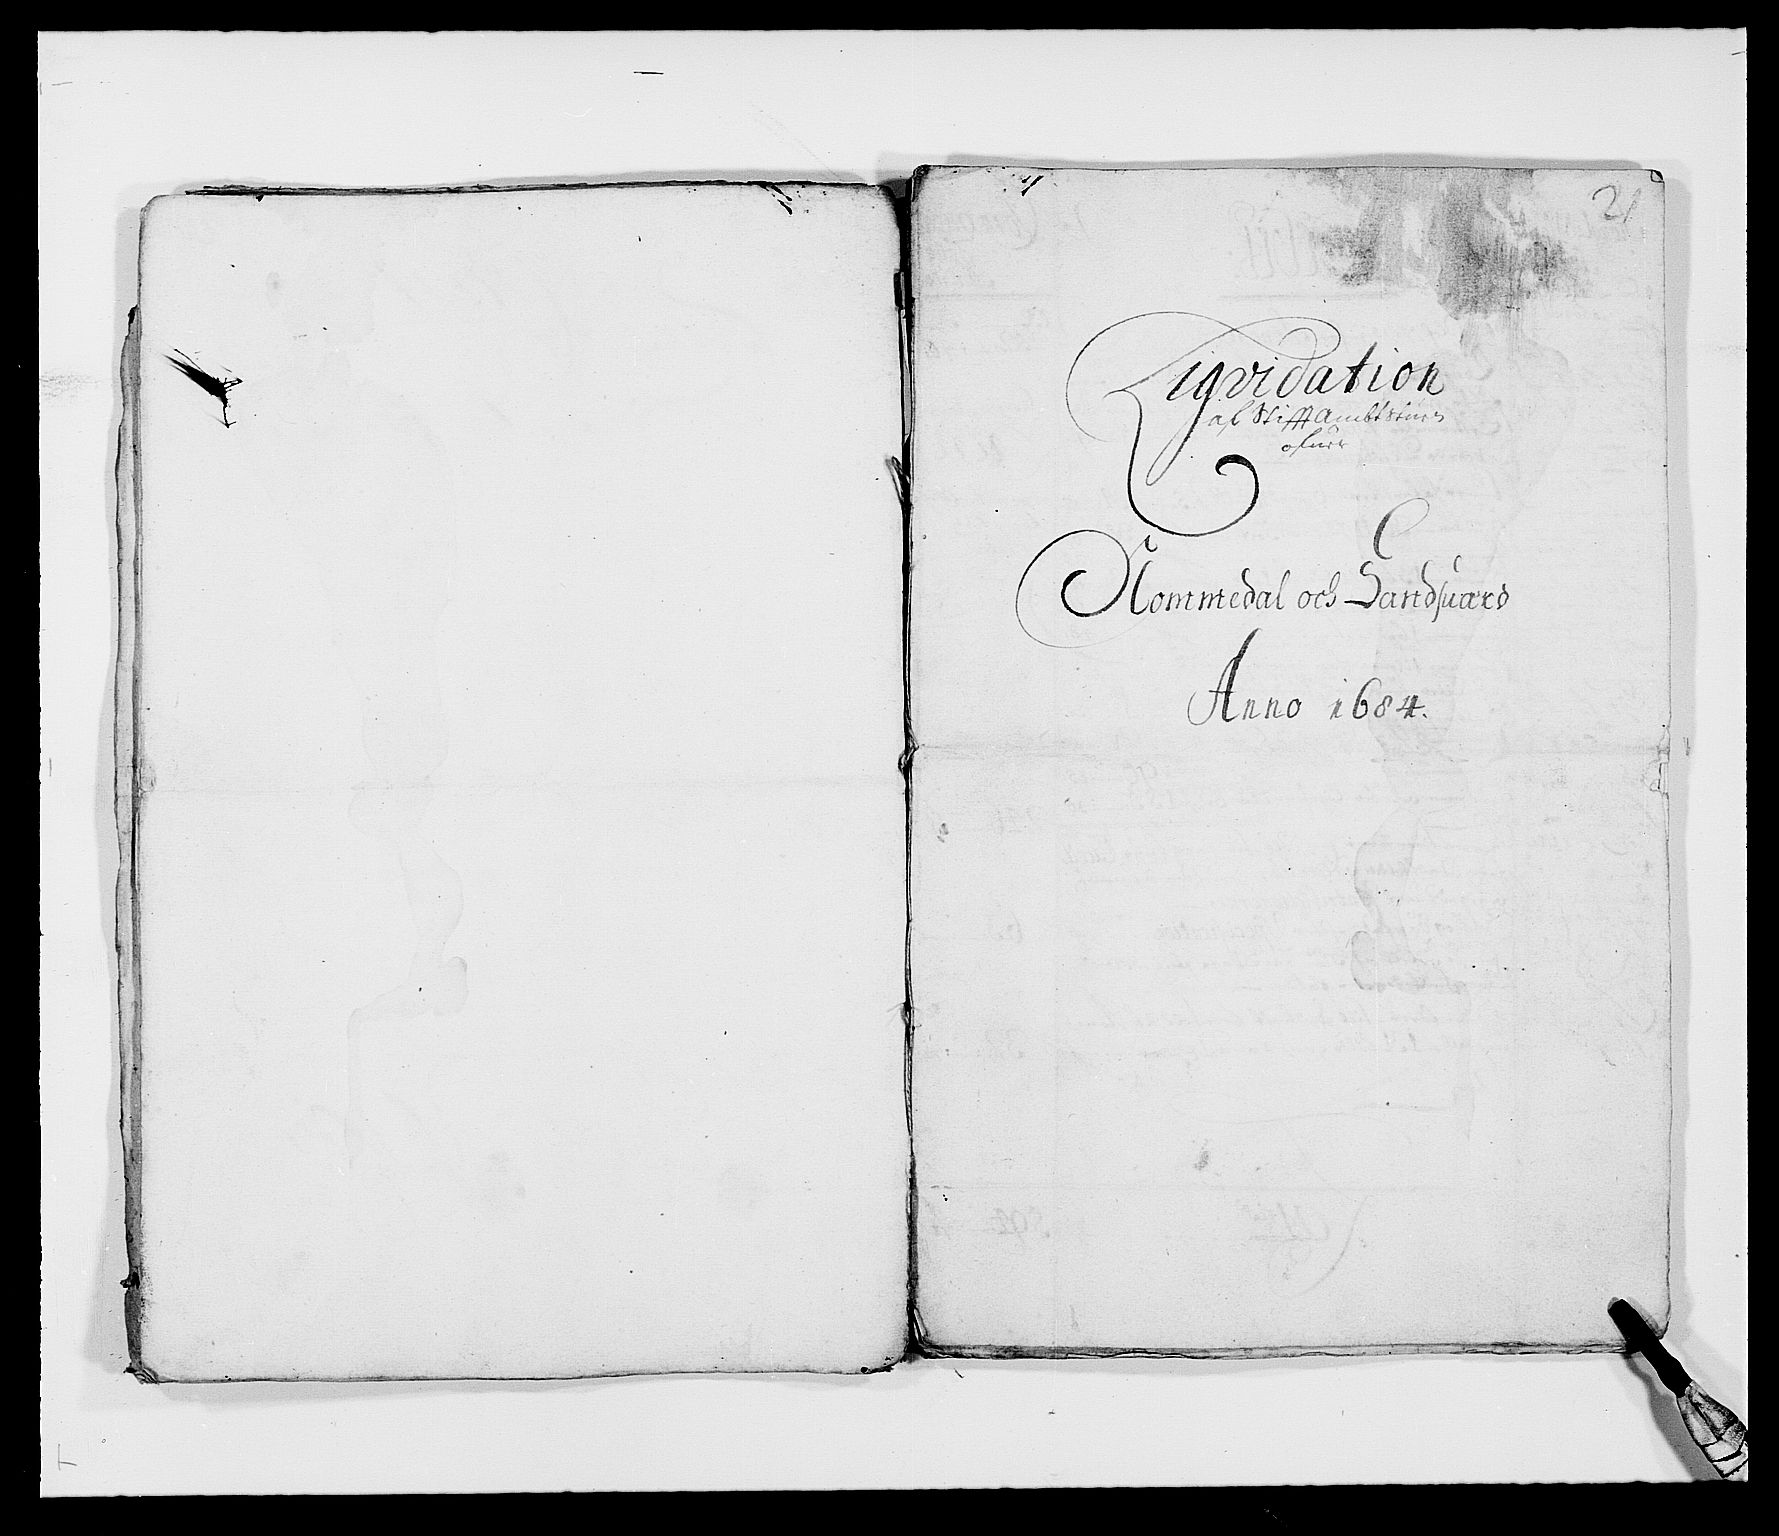 21
Liqvidation
af Stifft Ambtstuen
ofuer
Nommedal och Sandsuærd
Anno 1684.